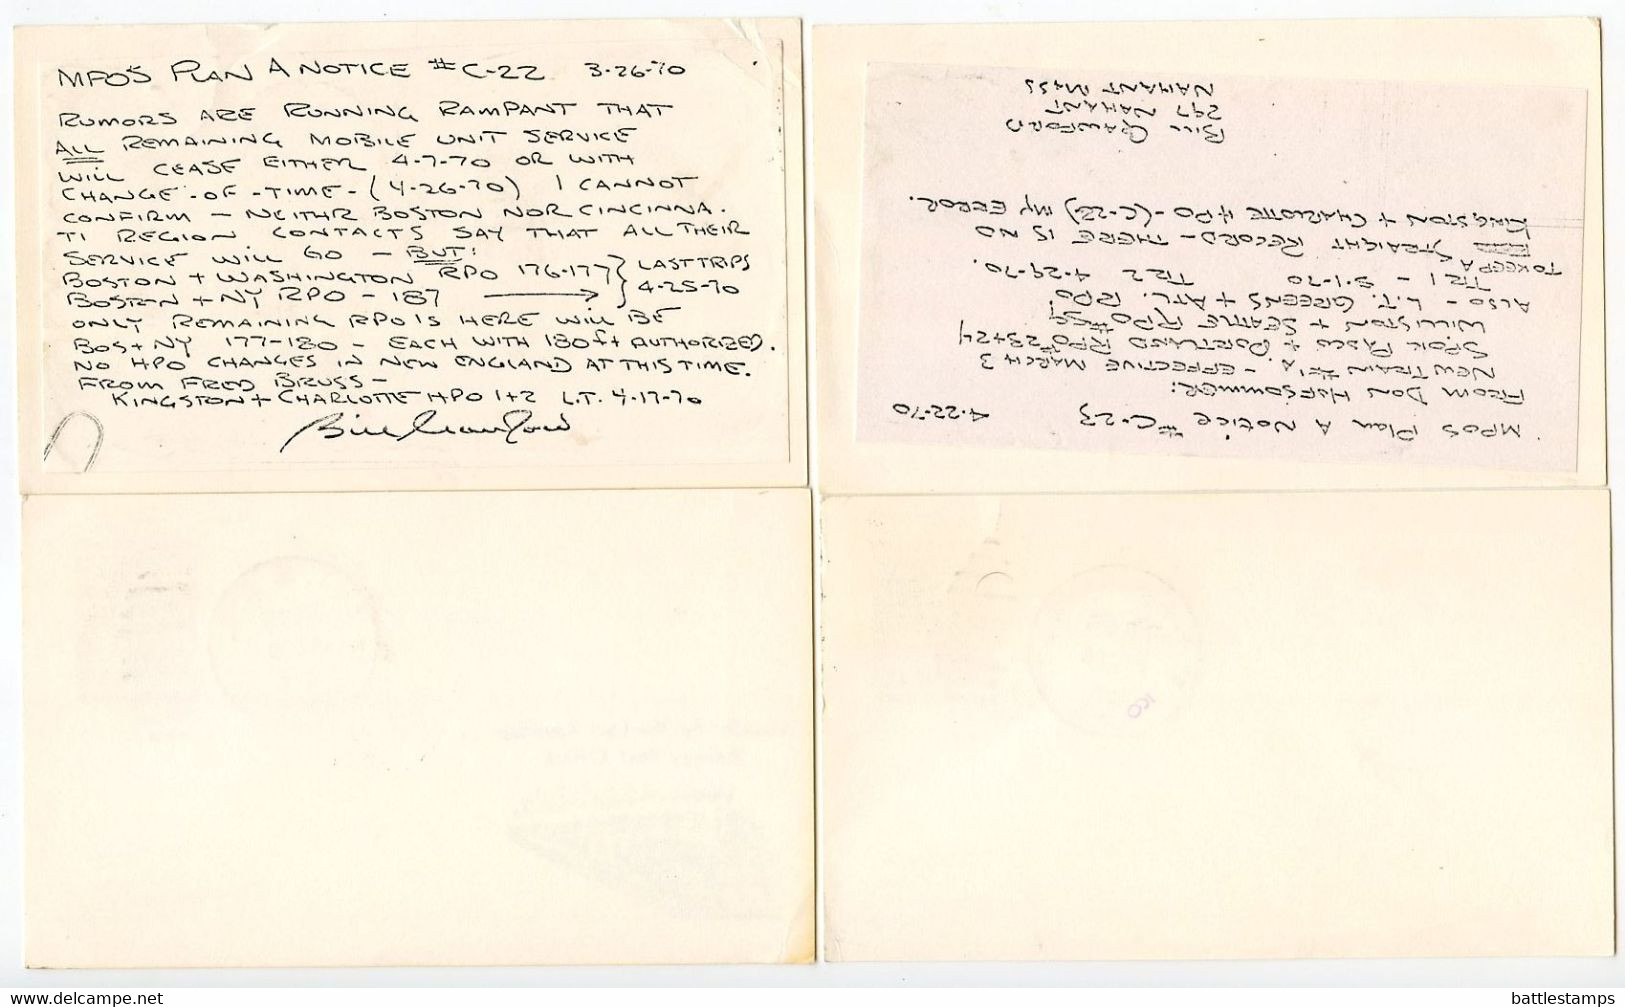 MPOS PLAN A NOTICE #C-22 3-26-70
RUMORS ARE RUNNING RAMPANT THAT
ALL REMAINING MOBILE UNIT SERVICE
WILL CEASE EITHER 4-7-70 OR WITH
CHANGE-OF-TIME-(4-26-70) I CANNOT
CONFIRM - NEITHR BOSTON NOR CINCINNA.
TI REGION CONTACTS SAY THAT ALL THEIR
SERVICE WILL GO - BUT:
BOSTON + WASHINGTON RPO 176-177 } LAST TRIPS
BOSTON + NY RPO - 187 → } 4-25-70
ONLY REMAINING RPO IS HERE WILL BE
BOS + NY 177-180 - EACH WITH 180 ft AUTHORIZED.
NO HPO CHANGES IN NEW ENGLAND AT THIS TIME.
FROM FRED BRUSS -
KINGSTON + CHARLOTTE HPO 1+2 L.T. 4-17-70
Bill Crawford
MPOS Plan A Notice #C-23 4-22-70
FROM DON HOFSOMMER:
NEW TRAIN #'s. - EFFECTIVE MARCH 3
SPOK PASCO + PORTLAND RPO #23+24
WILLISTON + SEATTLE RPO
ALSO - L.T. GREENS + ATL. RPO
TR 1 - 5-1-70 TR 2 4-29-70.
TO KEEP A STRAIGHT RECORD - THERE IS NO
KINGSTON + CHARLOTTE HPO - (C-22) MY ERROR.
BILL CRAWFORD
297 NAHANT
NAHANT MASS
https://www.delcampe.net
battlestamps